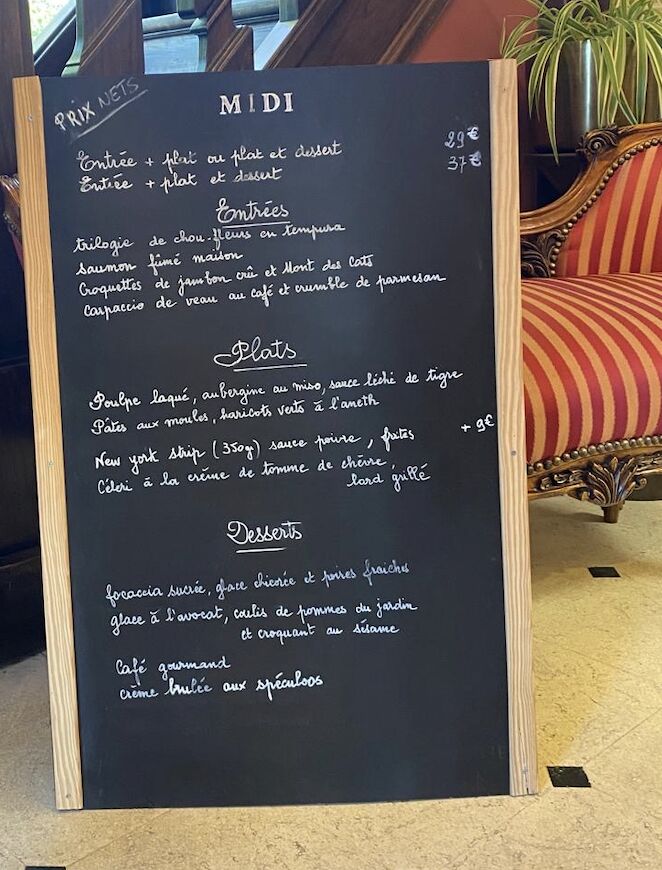 PRIX NETS
MIDI
Entrée + plat ou plat et dessert 29€
Entrée + plat et dessert 37€
Entrées
trilogie de chou-fleurs en tempura
saumon fûmé maison
Croquettes de jambon crû et Mont des Cats
Carpaccio de veau au café et crumble de parmesan
Plats
Poulpe laqué, aubergine au miso, sauce léché de tigre
Pâtes aux moules, haricots verts à l'aneth
New york strip (350gr) sauce poivre, frites + 9€
Céleri à la crème de tomme de chèvre,
lard grillé
Desserts
focaccia sucrée, glace chicorée et poires fraiches
glace à l'avocat, coulis de pommes du jardin
et croquant au sésame
Café gourmand
crème brulée aux spéculoos